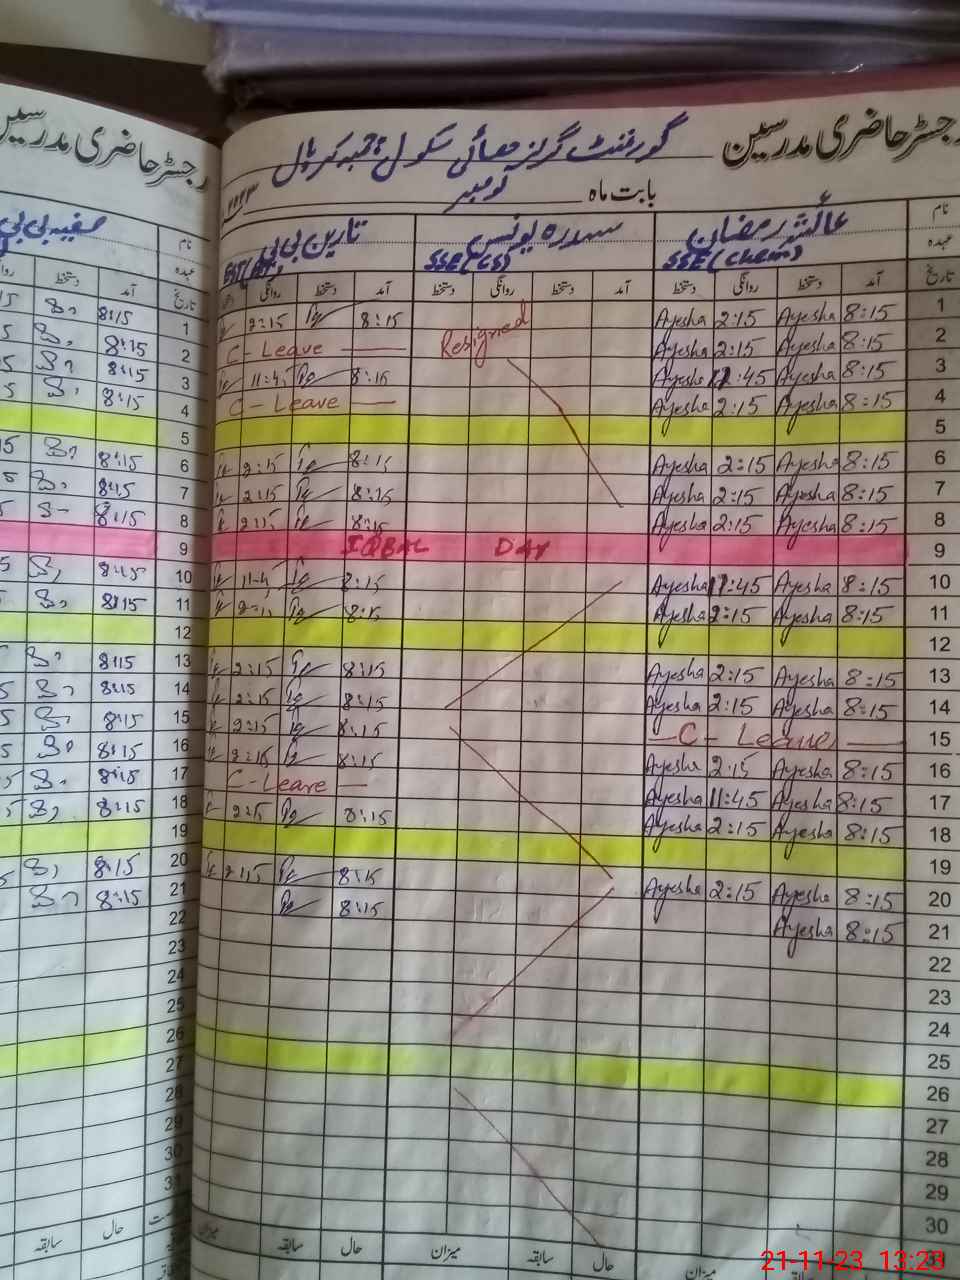 رجسٹر حاضری مدرسین
گورنمنٹ گرلز ہائی سکول
بابت ماہ نومبر ۲۰۲۳
نام عائشہ رمضان سدرہ یونس
عہدہ SSE (Chem) SSE (CS)
تاریخ آمد دستخط روانگی دستخط آمد دستخط روانگی دستخط آمد دستخط روانگی
1 8:15 Ayesha 2:15 Ayesha Resigned 8:15 2:15
2 8:15 Ayesha 2:15 Ayesha C-Leave
3 8:15 Ayesha 11:45 Ayesha 8:15 11:45
4 8:15 Ayesha 2:15 Ayesha C-Leave
5
6 8:15 Ayesha 2:15 Ayesha 8:15 2:15
7 8:15 Ayesha 2:15 Ayesha 8:15 2:15
8 8:15 Ayesha 2:15 Ayesha 8:15 2:15
9 IQBAL DAY
10 8:15 Ayesha 11:45 Ayesha 8:15
11 8:15 Ayesha 2:15 Ayesha 8:15
12
13 8:15 Ayesha 2:15 Ayesha 8:15 2:15
14 8:15 Ayesha 2:15 Ayesha 8:15 2:15
15 C-Leave 8:15 2:15
16 8:15 Ayesha 2:15 Ayesha 8:15 2:15
17 8:15 Ayesha 11:45 Ayesha C-Leave
18 8:15 Ayesha 2:15 Ayesha 8:15 2:15
19
20 8:15 Ayesha 2:15 Ayesha 8:15 2:15
21 8:15 Ayesha 8:15
22
23
24
25
26
27
28
29
30
میزان حال سابقہ میزان حال سابقہ میزان
رجسٹر حاضری مدرسین
نام صفیہ بی بی
عہدہ
تاریخ آمد دستخط
1 8:15
2 8:15
3 8:15
4 8:15
5
6 8:15
7 8:15
8 8:15
9
10 8:15
11 8:15
12
13 8:15
14 8:15
15 8:15
16 8:15
17 8:15
18 8:15
19
20 8:15
21 8:15
22
23
24
25
26
27
28
29
30
حال سابقہ
21-11-23 13:23